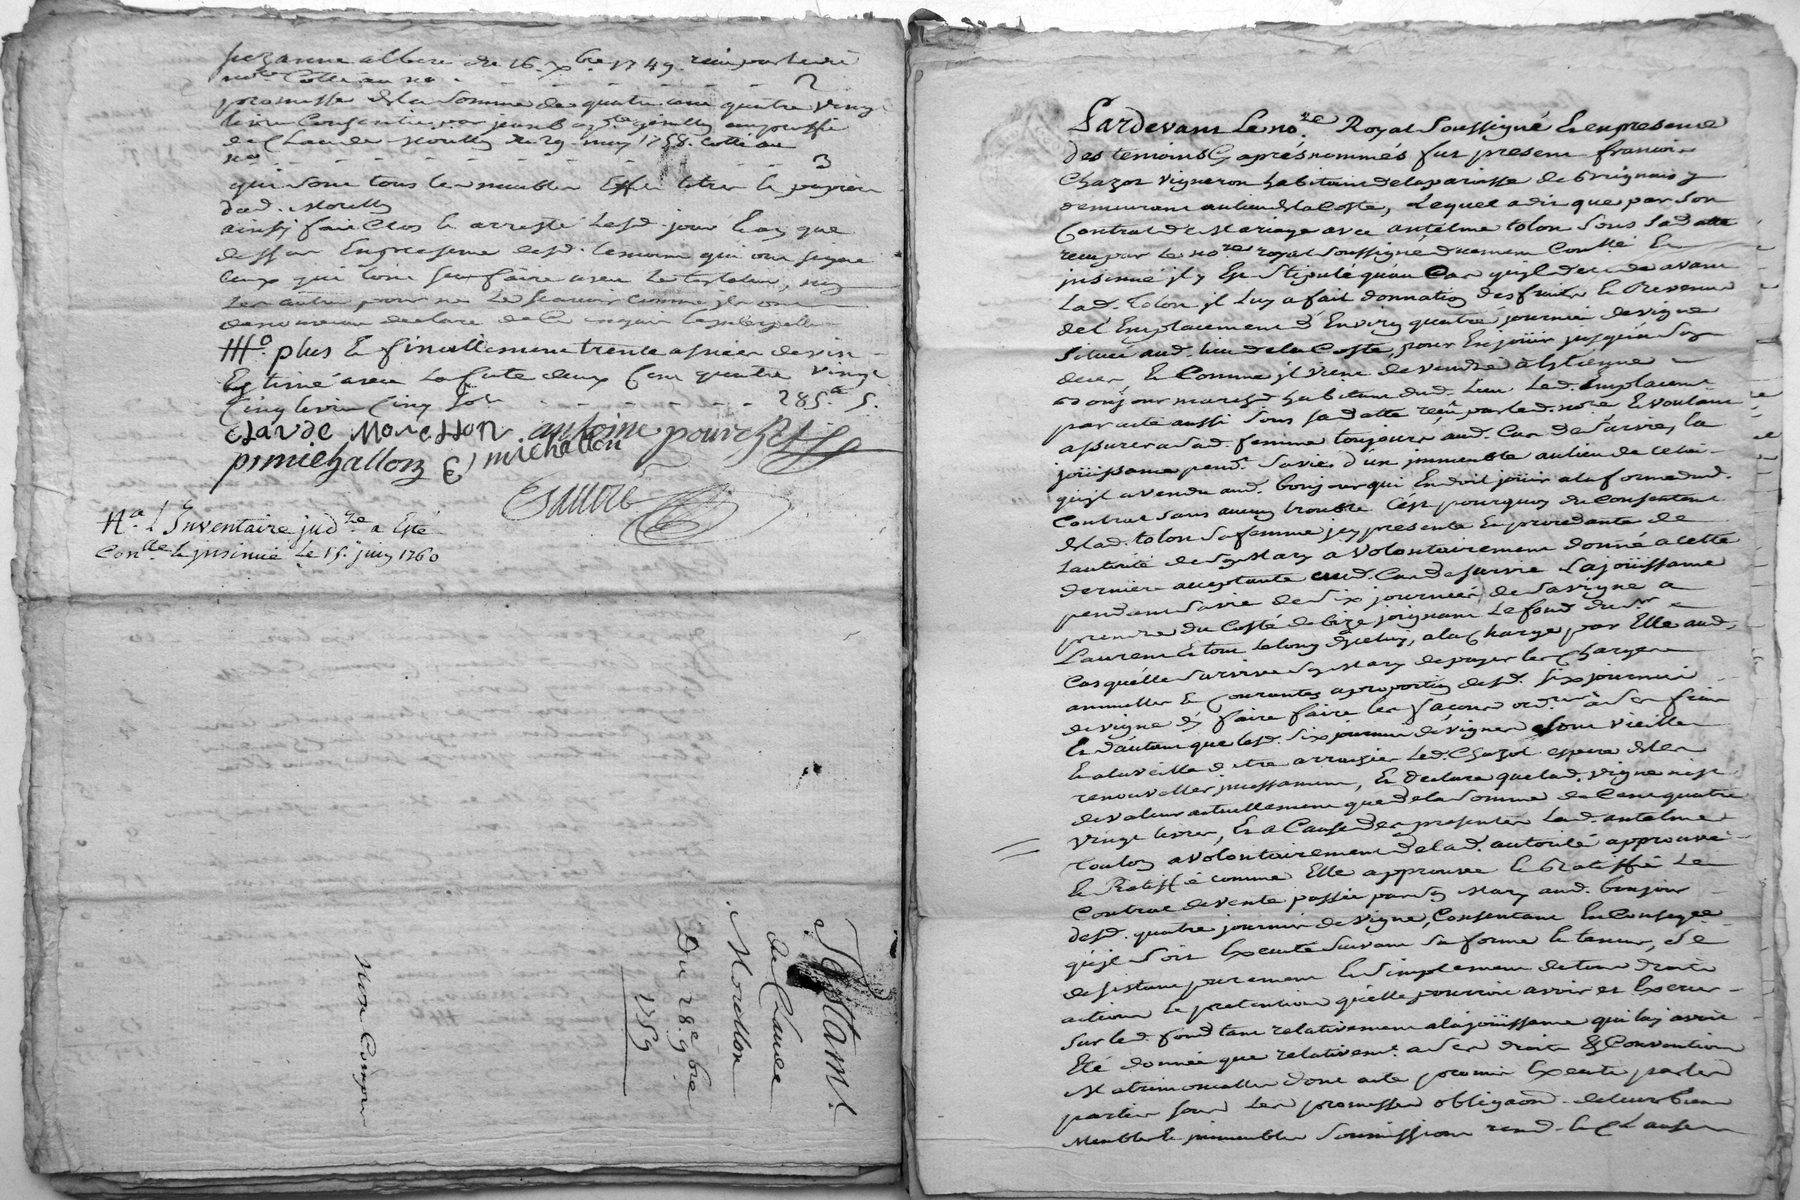 suzanne albere du 16. xbre 1749. reçu par ledit
no.re Cotté au no. - 2
promesse de la Somme de quatre cent quatre vingt
livres Consentie par jean B
de Claude Morellon du 29. may 1758. Cottée au
no. - 3
qui sont tous les meubles Effets titres et papiers
dud. Morellon
ainsy fait Clos et arresté lesd. jour et an que
dessus En presence desd. temoins qui ont signé
ceux qui l'ont sceu faire avec le testateur, non
les autres pour ne le scavoir comme ils ont
de nouveau declaré de ce enquis
plus Et finallement trente asnées de vin
Estimé avec la futte deux Cent quatre vingt
Cinq livres Cinq sols - 285.# 5.
claude Morellon antoine pourchet
p michallon michallon
Na. L'Inventaire jud.re a Eté
Con.llé et jnsinué Le 15. juin 1760
Testam.t
de Claude
Morellon
Du 28.e 9bre
1759
Mon Comper
Pardevant Le no.re Royal Soussigné Et en presence
des temoins Cy aprés nommés fut present francois
Chazot vigneron habitant de la parroisse de Brignais y
demeurant au lieu de la Coste, Lequel a dit que par Son
Contrat de Mariage avec antelme tolon Sous Sa datte
reçu par Le no.re royal soussigné duement Con.llé Et
jnsinué il y Est Stipulé quau Cas quyl decede avant
Lad. tolon il Luy a fait donnation des fruits et Revenus
de L'Emplacement d'Environ quatre journées de vigne
Situées aud. lieu de la Coste, pour En joüir jusqu'a Son
deces Et Comme il vient de vendre a Estienne
Bonjour march.d habitant dud. Lieu Led. Emplacem.t
par acte aussi Sous Sa datte reçu par led. no.re Et voulant
assurer a Sad. femme toujours aud. Cas de Survie, la
joüissance pend.t Sa vie, d'un jmmeuble au lieu de celui
qu'jl a vendu aud. bonjour qui En doit joüir a la forme dud.
Contrat Sans aucun trouble C'est pourquoy du Consentem.t
de lad. tolon Sa femme jcy presente Et procedante de
L'autorité de Son Mary a volontairement donné a cette
derniere acceptante aud. Cas de Survie La joüissance
pendant Sa vie de Six journées de Sa vigne a
prendre du Costé de bize joignant Le fond du Sr.
Laurent Et tout le long d'jcelui, a la Charge par Elle aud.
Cas qu'elle Survive Son Mary de payer les Charges
annuelles et Courantes a proportion desd. Six journées
de vigne d'y faire faire les façons ord.res a Ses frais
Et d'autant que lesd. Six journées de vigne Sont vieilles
Et a la veille d'etre arrachées Led. Chazot espere de les
renouveller jncessament, Et declare que lad. vigne n'est
de valeur actuellement que de la Somme de Cent quatre
vingt livres, Et a Cause des presentes Lad. antelme
toulon a volontairement de lad. autorité approuvé
Et Ratiffié comme Elle approuve et Ratiffie Le
Contrat de vente passée par Son Mary aud. bonjour
desd. quatre journées de vigne, Consentant En Consequce
qu'jl Soit Executé Suivant Sa forme et teneur, Se
desistant purement Et Simplement de tous droits
actions et pretentions qu'elle pourroit avoir et Exercer
Sur led. fond tant relativement a la joüissance qui luy avoit
Eté donnée que relativem.t a Ses droits Et Conventions
Matrimonialles dont acte promis Executé par les
parties Sous Les promesses obligaõns de leurs biens
Meubles et jmmeubles Soumissions renõ. et Clauses